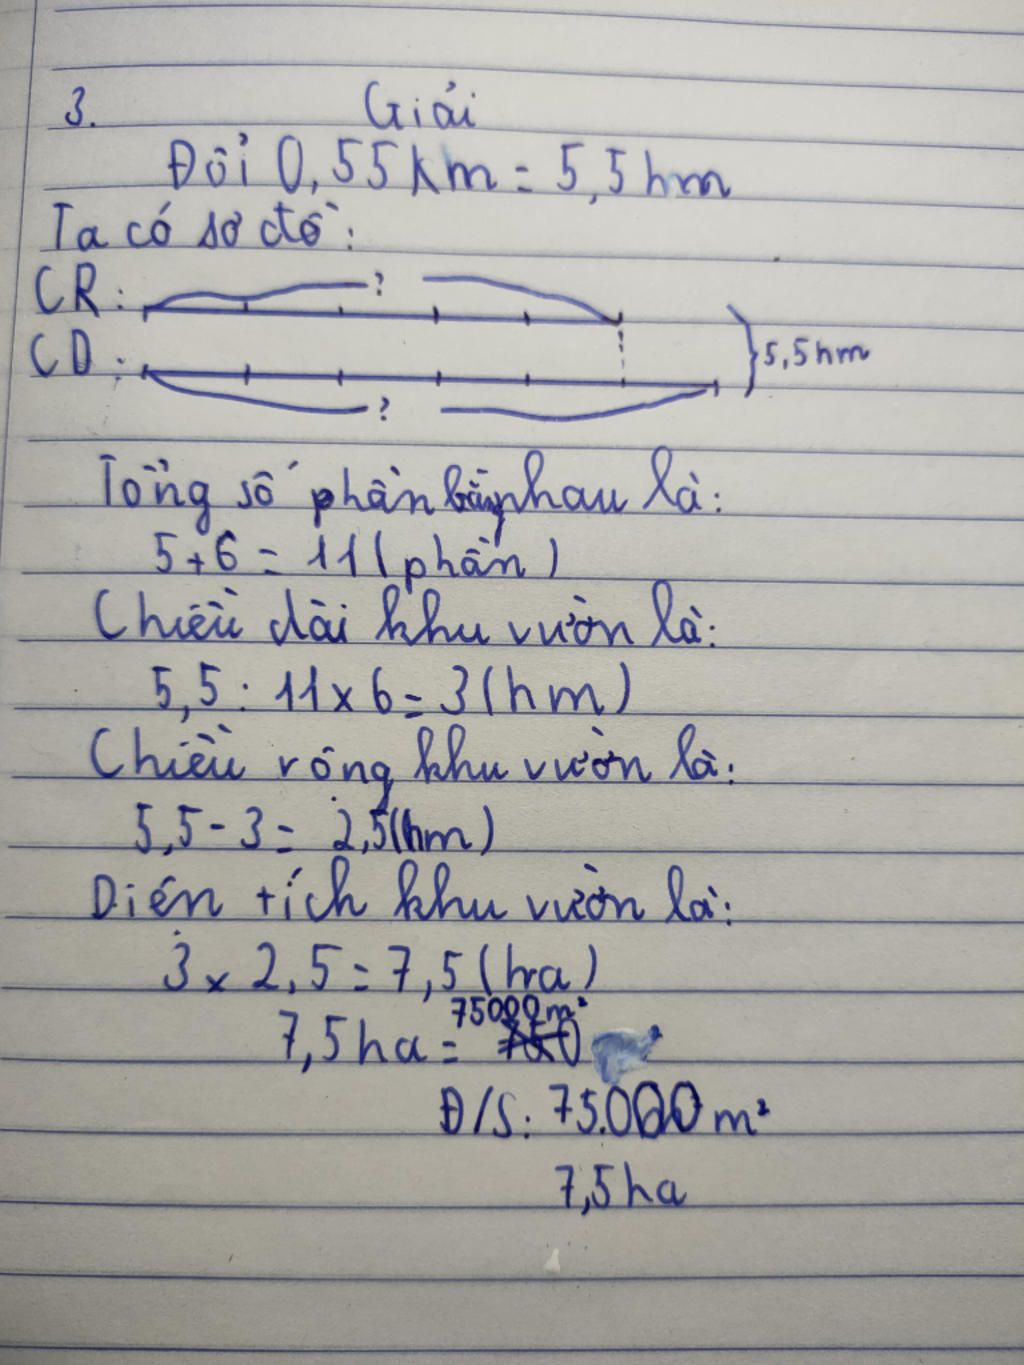 3. Giải
Đổi 0,55km = 5,5hm
Ta có sơ đồ:
CR: ?
CD: ? 5,5hm
Tổng số phần bằng nhau là:
5+6 = 11 (phần)
Chiều dài khu vườn là:
5,5 : 11 x 6 = 3 (hm)
Chiều rộng khu vườn là:
5,5 - 3 = 2,5 (hm)
Diện tích khu vườn là:
3 x 2,5 = 7,5 (ha)
7,5 ha = 75000 m²
Đ/S: 75.000 m²
7,5 ha